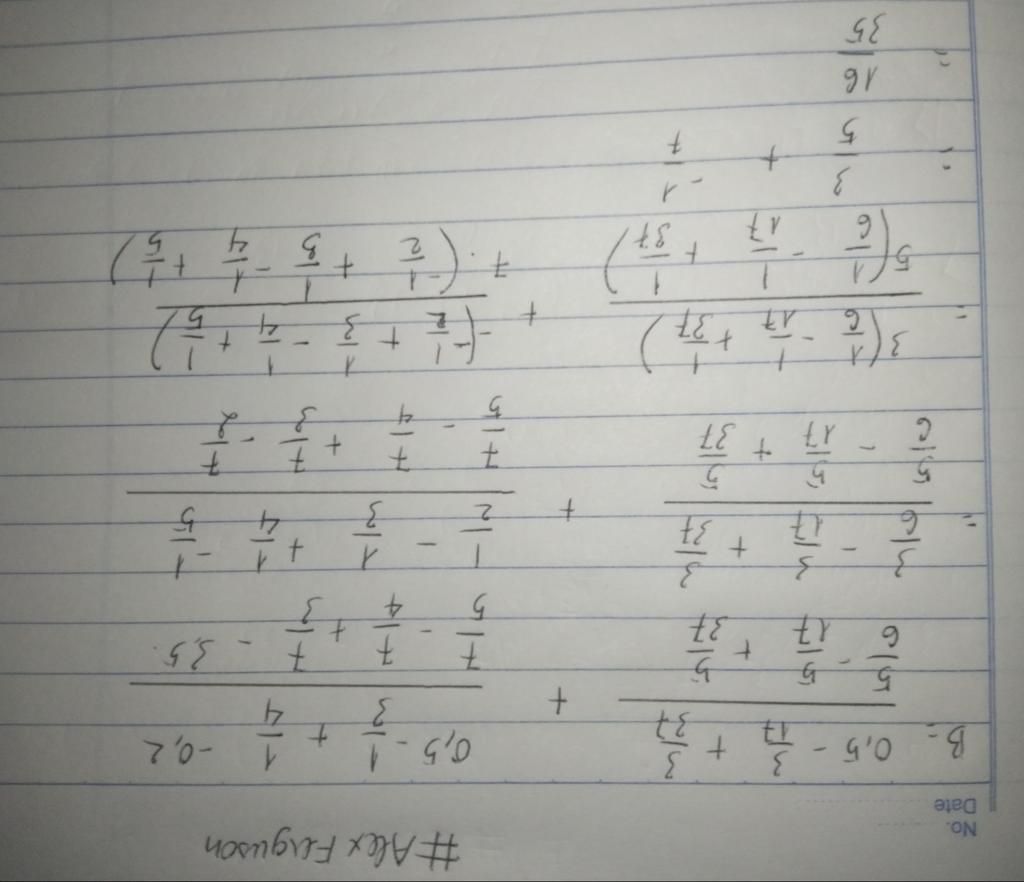 #Alex Ferguson
No.
Date
B = (0,5 - 3/17 + 3/37) / (5/6 - 5/17 + 5/37) + (0,5 - 1/3 + 1/4 - 0,2) / (7/5 - 7/4 + 7/3 - 3,5.)
= (3/6 - 3/17 + 3/37) / (5/6 - 5/17 + 5/37) + (1/2 - 1/3 + 1/4 - 1/5) / (7/5 - 7/4 + 7/3 - 7/2)
= 3(1/6 - 1/17 + 1/37) / 5(1/6 - 1/17 + 1/37) + -(-1/2 + 1/3 - 1/4 + 1/5) / 7.(-1/2 + 1/3 - 1/4 + 1/5)
= 3/5 + -1/7
= 16/35